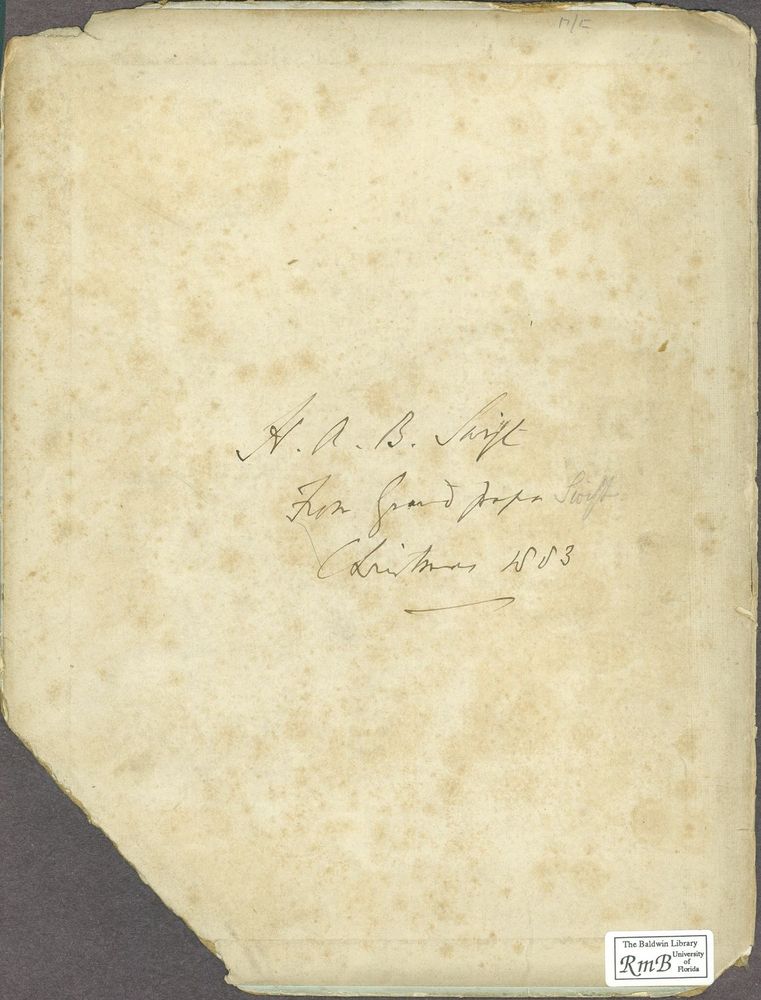 H. A. B. Swift
From Grand papa Swift
Christmas 1883
The Baldwin Library
RmB University
of
Florida